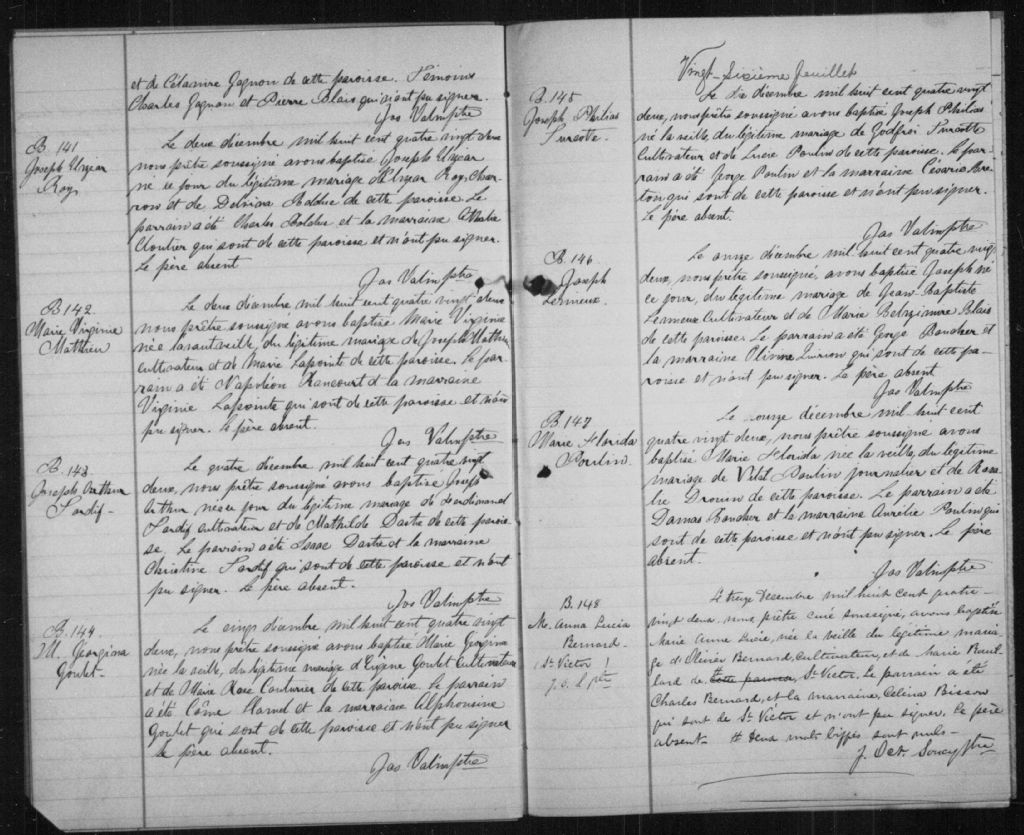 et de Célanire Gagnon de cette paroisse. Témoins
Charles Gagnon et Pierre Blais qui n'ont pu signer.
Jos Valin ptre
B. 141
Joseph Uzéar
Roy
Le deux décembre mil huit cent quatre vingt deux
nous prêtre soussigné avons baptisé Joseph Uzéar
né ce jour du légitime mariage d'Uzéar Roy, Char-
ron et de Delvina Bolduc de cette paroisse. Le
parrain a été Charles Bolduc et la marraine
Cloutier qui sont de cette paroisse et n'ont pu signer.
Le père absent
Jos Valin ptre
B 142
Marie Virginie
Matthieu
Le deux décembre mil huit cent quatre vingt deux
nous prêtre soussigné avons baptisé Marie Virginie
née l'avant veille, du légitime mariage de Joseph Mathieu
cultivateur et de Marie Lapointe de cette paroisse. Le par-
rain a été Napoléon Rancourt et la marraine
Virginie Lapointe qui sont de cette paroisse et n'ont
pu signer. Le père absent.
Jos Valin ptre
B. 143
Joseph Arthur
Tardif-
Le quatre décembre mil huit cent quatre vingt
deux, nous prêtre soussigné avons baptisé Joseph
Arthur né ce jour du légitime mariage de Ferdinand
Tardif cultivateur et de Mathilde Dastie de cette parois-
se. Le parrain a été Isaac Dastie et la marraine
Christine Tardif qui sont de cette paroisse et n'ont
pu signer. Le père absent.
Jos Valin ptre
B. 144
M. Georgina
Goulet-
Le cinq décembre mil huit cent quatre vingt
deux, nous prêtre soussigné avons baptisé Marie Georgina
née la veille, du légitime mariage d'Eugène Goulet Cultivateur
et de Marie Rose Couturier de cette paroisse. Le parrain
a été Côme Hamel et la marraine Alphonsine
Goulet qui sont de cette paroisse et n'ont pu signer
le père absent.
Jos Valin ptre
Vingt-Sixième feuillet
B. 145
Joseph Philias
Turcotte.
Le dix décembre mil huit cent quatre vingt
deux, nous prêtre soussigné avons baptisé Joseph Philias
né la veille, du légitime mariage de Godfroi Turcotte
Cultivateur et de Luce Poulin de cette paroisse. Le par-
rain a été George Poulin et la marraine Césarie Bre-
ton qui sont de cette paroisse et n'ont pu signer.
Le père absent.
Jos Valin ptre
B. 146
Joseph
Lemieux.
Le onze décembre mil huit cent quatre vingt
deux, nous prêtre soussigné, avons baptisé Joseph né
ce jour, du légitime mariage de Jean-Baptiste
Lemieux Cultivateur et de Marie Blais
de cette paroisse. Le parrain a été George Boucher et
la marraine Olivine qui sont de cette pa-
roisse et n'ont pu signer. Le père absent
Jos Valin ptre
B 147
Marie Florida
Poulin.
Le onze décembre mil huit cent
quatre vingt deux, nous prêtre soussigné avons
baptisé Marie Florida née la veille, du légitime
mariage de Vital Poulin journalier et de Rosa-
lie Drouin de cette paroisse. Le parrain a été
Damas Boucher et la marraine Aurélie Poulin qui
sont de cette paroisse et n'ont pu signer. Le père
absent.
Jos Valin ptre
B. 148
M. Anna Lucia
Bernard.
St Victor!
J. O. S. ptre
Le treize Décembre mil huit cent quatre-
vingt deux, nous Prêtre curé soussigné, avons baptisé
Marie Anne Lucie, née la veille du légitime maria-
ge d'Olivier Bernard, Cultivateur, et de Marie Roul-
lard de cette paroisse, St Victor. Le parrain a été
Charles Bernard, et la marraine, Célina Bisson
qui sont de St Victor et n'ont pu signer. Le père
absent- # Deux mots biffés sont nuls-
J. Oct Soucy Ptre